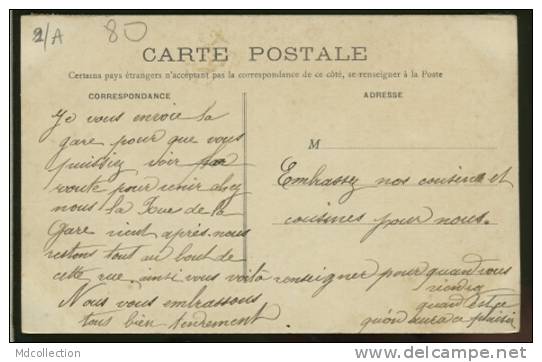 2/A 80
CARTE POSTALE
Certains pays étrangers n'acceptant pas la correspondance de ce côté, se renseigner à la Poste
CORRESPONDANCE
Je vous envoie la
gare pour que vous
puissiez voir la
route pour venir chez
nous la Rue de la
Gare vient après. nous
restons tout au bout de
cette rue ainsi vous voilà renseigner pour quand vous
viendrez
Nous vous embrassons
tous bien tendrement
ADRESSE
M
Embrassez nos cousins et
cousines pour nous.
quand est ce
qu'on aura ce plaisir
MDcollection
http://www.delcampe.net